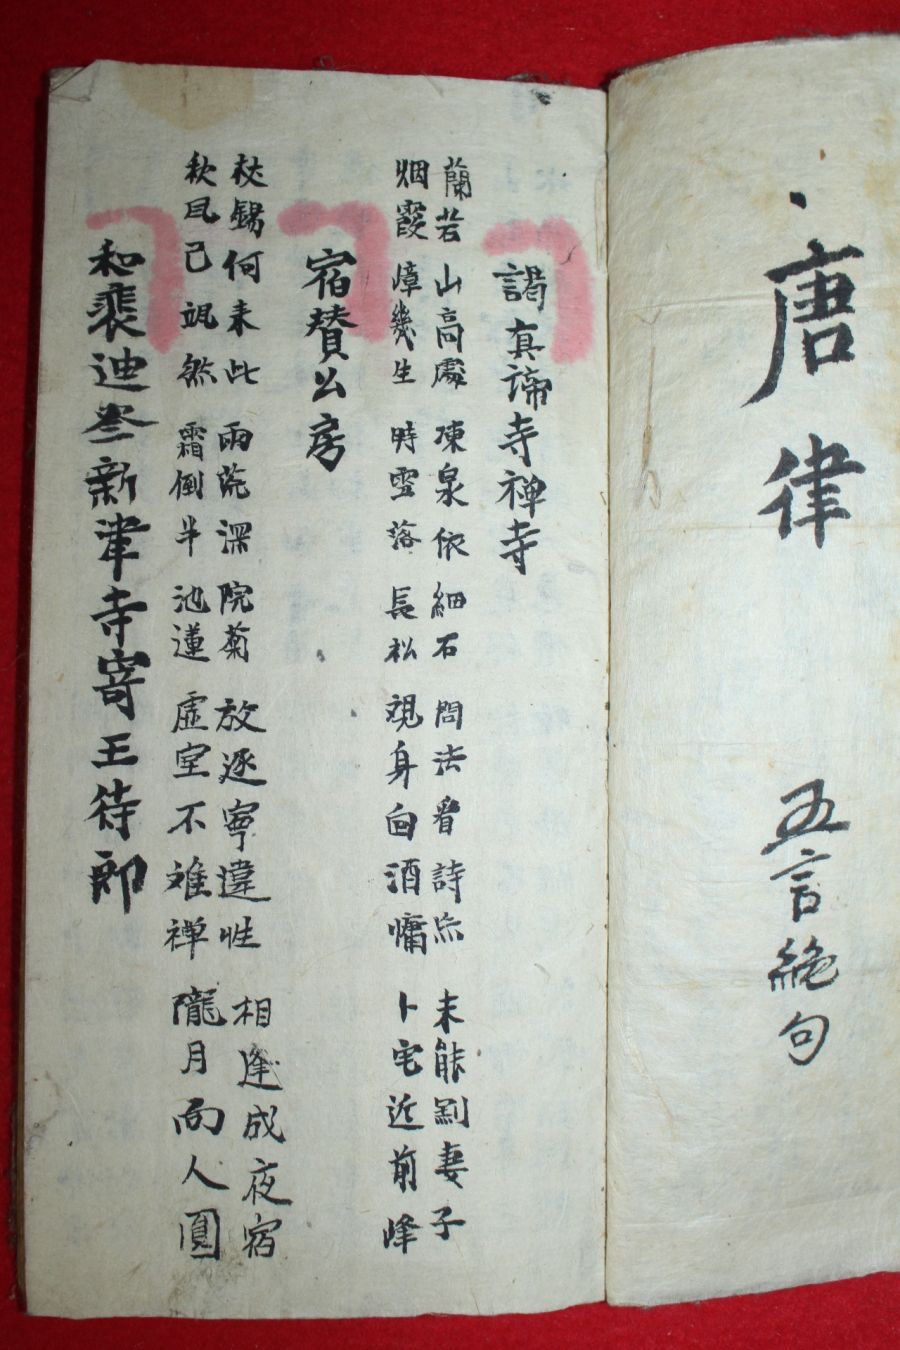 唐律 五言絶句
謁真諦寺禅寺
蘭若山高處 凍泉依細石 問法看詩忘 未能割妻子
烟霞嶂幾生 時雪落長松 覌身向酒慵 卜宅近前峰
宿賛公房
杖錫何来此 雨荒深院菊 放逐寧違性 相逢成夜宿
秋凨已颯然 霜倒半池蓮 虛室不难禅 隴月向人圓
和裴迪叅新津寺寄王待郎